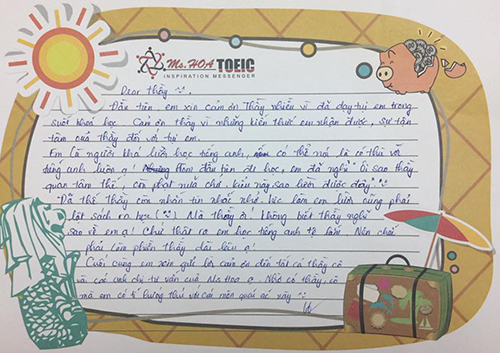 Ms. HOA TOEIC
INSPIRATION MESSENGER
Dear Thầy
Đầu tiên, em xin cảm ơn Thầy nhiều vì đã dạy tụi em trong
suốt khoá học. Cảm ơn thầy vì những kiến thức em nhận được, sự tận
tâm của thầy đối với tụi em.
Em là người khá lười học tiếng anh, có thể nói là có thù với
tiếng anh luôn ạ! Nhưng Hôm đầu tiên đi học, em đã nghĩ "Ôi sao thầy
quan tâm thế, còn phạt nữa chứ, kiểu này sao lười được đây"
Đã thế Thầy còn nhắn tin nhắc nhở. Lúc làm em lười cũng phải
lật sách ra học. Mà thầy ơi! không biết thầy nghĩ
sao về em ạ! Chứ thật ra em học tiếng anh tệ lắm. Nên chắc
phải làm phiền thầy dài lâu ạ!
Cuối cùng em xin gửi lời cảm ơn đến tất cả thầy cô
và các anh chị tư vấn của Ms Hoa ạ. Nhờ có thầy, cô
mà em có hứng thú với cái môn quái ác này